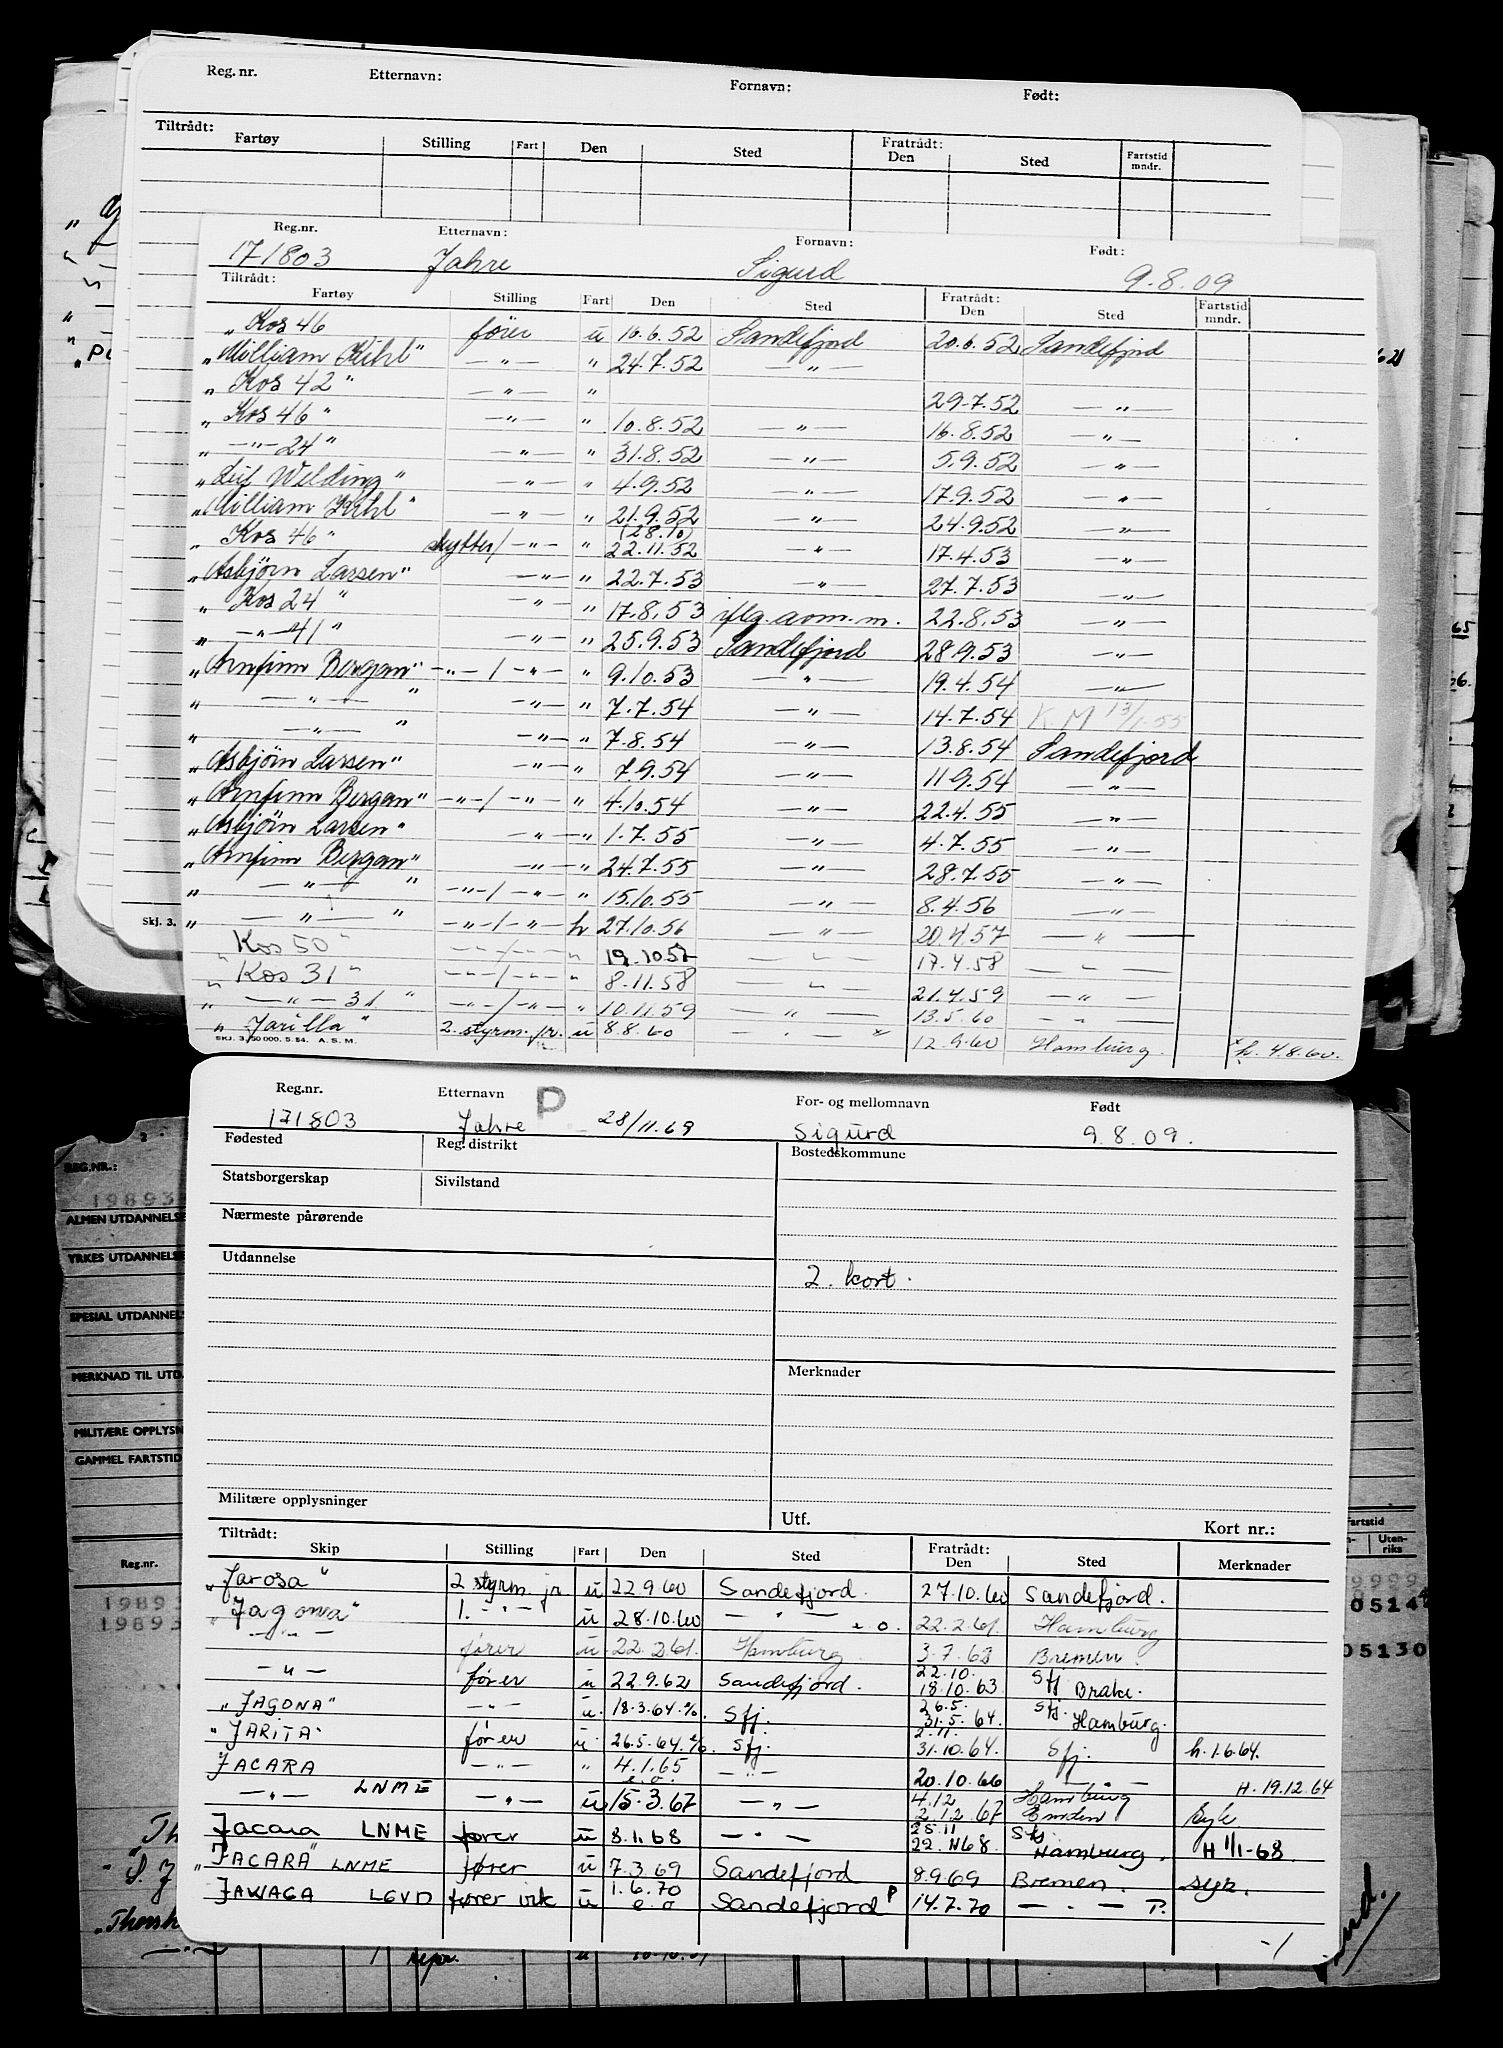 Reg. nr. Etternavn: Fornavn: Født:
Tiltrådt: Fratrådt:
Fartøy Stilling Fart Den Sted Den Sted Fartstid mndr.
Reg.nr. Etternavn: Fornavn: Født:
171803 Jahre Sigurd 9.8.09
Tiltrådt: Fratrådt:
Fartøy Stilling Fart Den Sted Den Sted Fartstid mndr.
„ Kos 46 fører u 16.6.52 Sandefjord 20.6.52 Sandefjord
„William Kihl" —„— " 24.7.52 —„—
„ Kos 42 " —„— " 29.7.52 —„—
„ Kos 46 " —„— " 10.8.52 —„— 16.8.52 —„—
„ —„— 24 " —„— " 31.8.52 —„— 5.9.52 —„—
„Leif Welding" —„— " 4.9.52 —„— 17.9.52 —„—
„William Kihl" —„— " 21.9.52 —„— 24.9.52 —„—
„ Kos 46 " skytter/—„— " (28.10) 22.11.52 —„— 17.4.53 —„—
„Asbjörn Larsen" —„— " 22.7.53 —„— 27.7.53 —„—
„ Kos 24 " —„— " 17.8.53 iflg. avm. m. 22.8.53 —„—
„ —„— 41 " —„— " 25.9.53 Sandefjord 28.9.53 —„—
„Arnfinn Bergan" —„—/—„— " 9.10.53 —„— 19.4.54 —„—
„ —„— " —„— " 7.7.54 —„— 14.7.54 K.M 13/1.55
„ —„— " —„— " 7.8.54 —„— 13.8.54 Sandefjord
„Asbjörn Larsen" —„— " 7.9.54 —„— 11.9.54 —„—
„Arnfinn Bergan" —„—/—„— " 4.10.54 —„— 22.4.55 —„—
„Asbjörn Larsen" —„— " 1.7.55 —„— 4.7.55 —„—
„Arnfinn Bergan" —„— " 24.7.55 —„— 28.7.55 —„—
„ —„— " —„—/—„— " 15.10.55 —„— 8.4.56 —„—
„ —„— " —„—/—„— h 27.10.56 —„— 20.4.57 —„—
„ Kos 50 " —„—/—„— " 19.10.57 —„— 17.4.58 —„—
„ Kos 31 " —„—/—„— " 8.11.58 —„— 21.4.59 —„—
„ —„— 31 " —„—/—„— " 10.11.59 —„— 13.5.60 —„—
„ Jarilla " 2. styrm. jr. u 8.8.60 —„— x 12.9.60 Hamburg. x h. 4.8.60.
SKJ. 3. 50 000. 5. 54. A. S. M.
Skj. 3.
Reg.nr. Etternavn For- og mellomnavn Født
171803 Jahre P 28/11.69 Sigurd 9.8.09.
Fødested Reg. distrikt Bostedskommune
Statsborgerskap Sivilstand
Nærmeste pårørende
Utdannelse
2. kort.
Merknader
Militære opplysninger Utf. Kort nr.:
Tiltrådt: Fratrådt:
Skip Stilling Fart Den Sted Den Sted Merknader
„Jarosa" 2 styrm. jr u 22.9.60 Sandefjord. 27.10.60 Sandefjord.
„Jagona" 1. —„— u 28.10.60 —„— e.o. 22.2.61. Hamburg
—„— fører u 22.2.61. Hamburg. 3.7.62 Bremen.
—„— fører u 22.9.62 Sandefjord. 22.10. 18.10.63 Sfj. Brake.
„JAGONA" —„— u. 18.3.64. Sfj. 26.5. 31.5.64. Sfj. Hamburg.
„JARITA" fører u. 26.5.64. Sfj. 2.11. 31.10.64. Sfj. h. 1.6.64.
JACARA —„— " 4.1.65 e.o. —„— 20.10.66 — — H. 19.12.64
—„— LNME —„— u 15.3.67 —„— 4.12 2.12.67 Hamburg Emden syk
Jacara LNME fører u 8.1.68 —„— 25.11 22.11.68 Sfj Hamburg. H 1/1-68.
„JACARA" LNME fører u 7.3.69 Sandefjord 8.9.69 Bremen. syk.
JAWAGA LGVD fører vik u 1.6.70 e.o Sandefjord P 14.7.70 —„— P.
-/
REG.NR.:
19893
ALMEN UTDANNELSE
YRKES UTDANNELSE
SPESIAL UTDANNELS
MERKNAD TIL UTD.
MILITÆRE OPPLYSN
GAMMEL FARTSTID
Reg.nr.
19893
19893
Fartstid
Utenriks
05144
05130